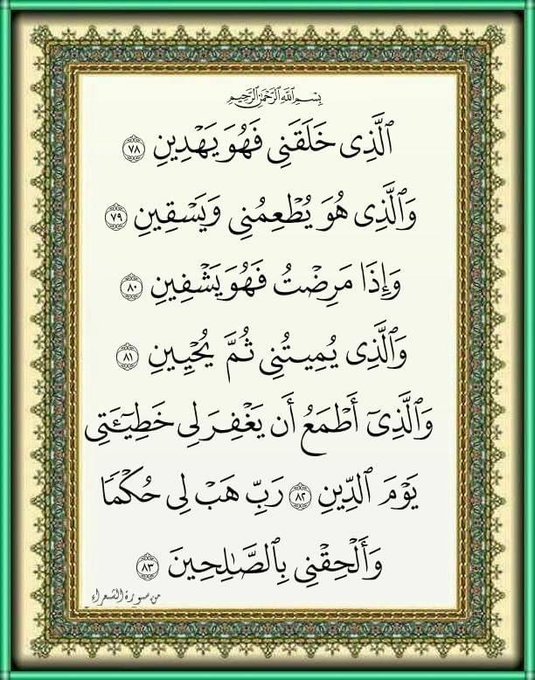 بِسْمِ اللَّهِ الرَّحْمَٰنِ الرَّحِيمِ
ٱلَّذِى خَلَقَنِى فَهُوَ يَهْدِينِ ٧٨
وَٱلَّذِى هُوَ يُطْعِمُنِى وَيَسْقِينِ ٧٩
وَإِذَا مَرِضْتُ فَهُوَ يَشْفِينِ ٨٠
وَٱلَّذِى يُمِيتُنِى ثُمَّ يُحْيِينِ ٨١
وَٱلَّذِىٓ أَطْمَعُ أَن يَغْفِرَ لِى خَطِيٓـَٔتِى
يَوْمَ ٱلدِّينِ ٨٢ رَبِّ هَبْ لِى حُكْمًا
وَأَلْحِقْنِى بِٱلصَّٰلِحِينَ ٨٣
من سورة الشعراء